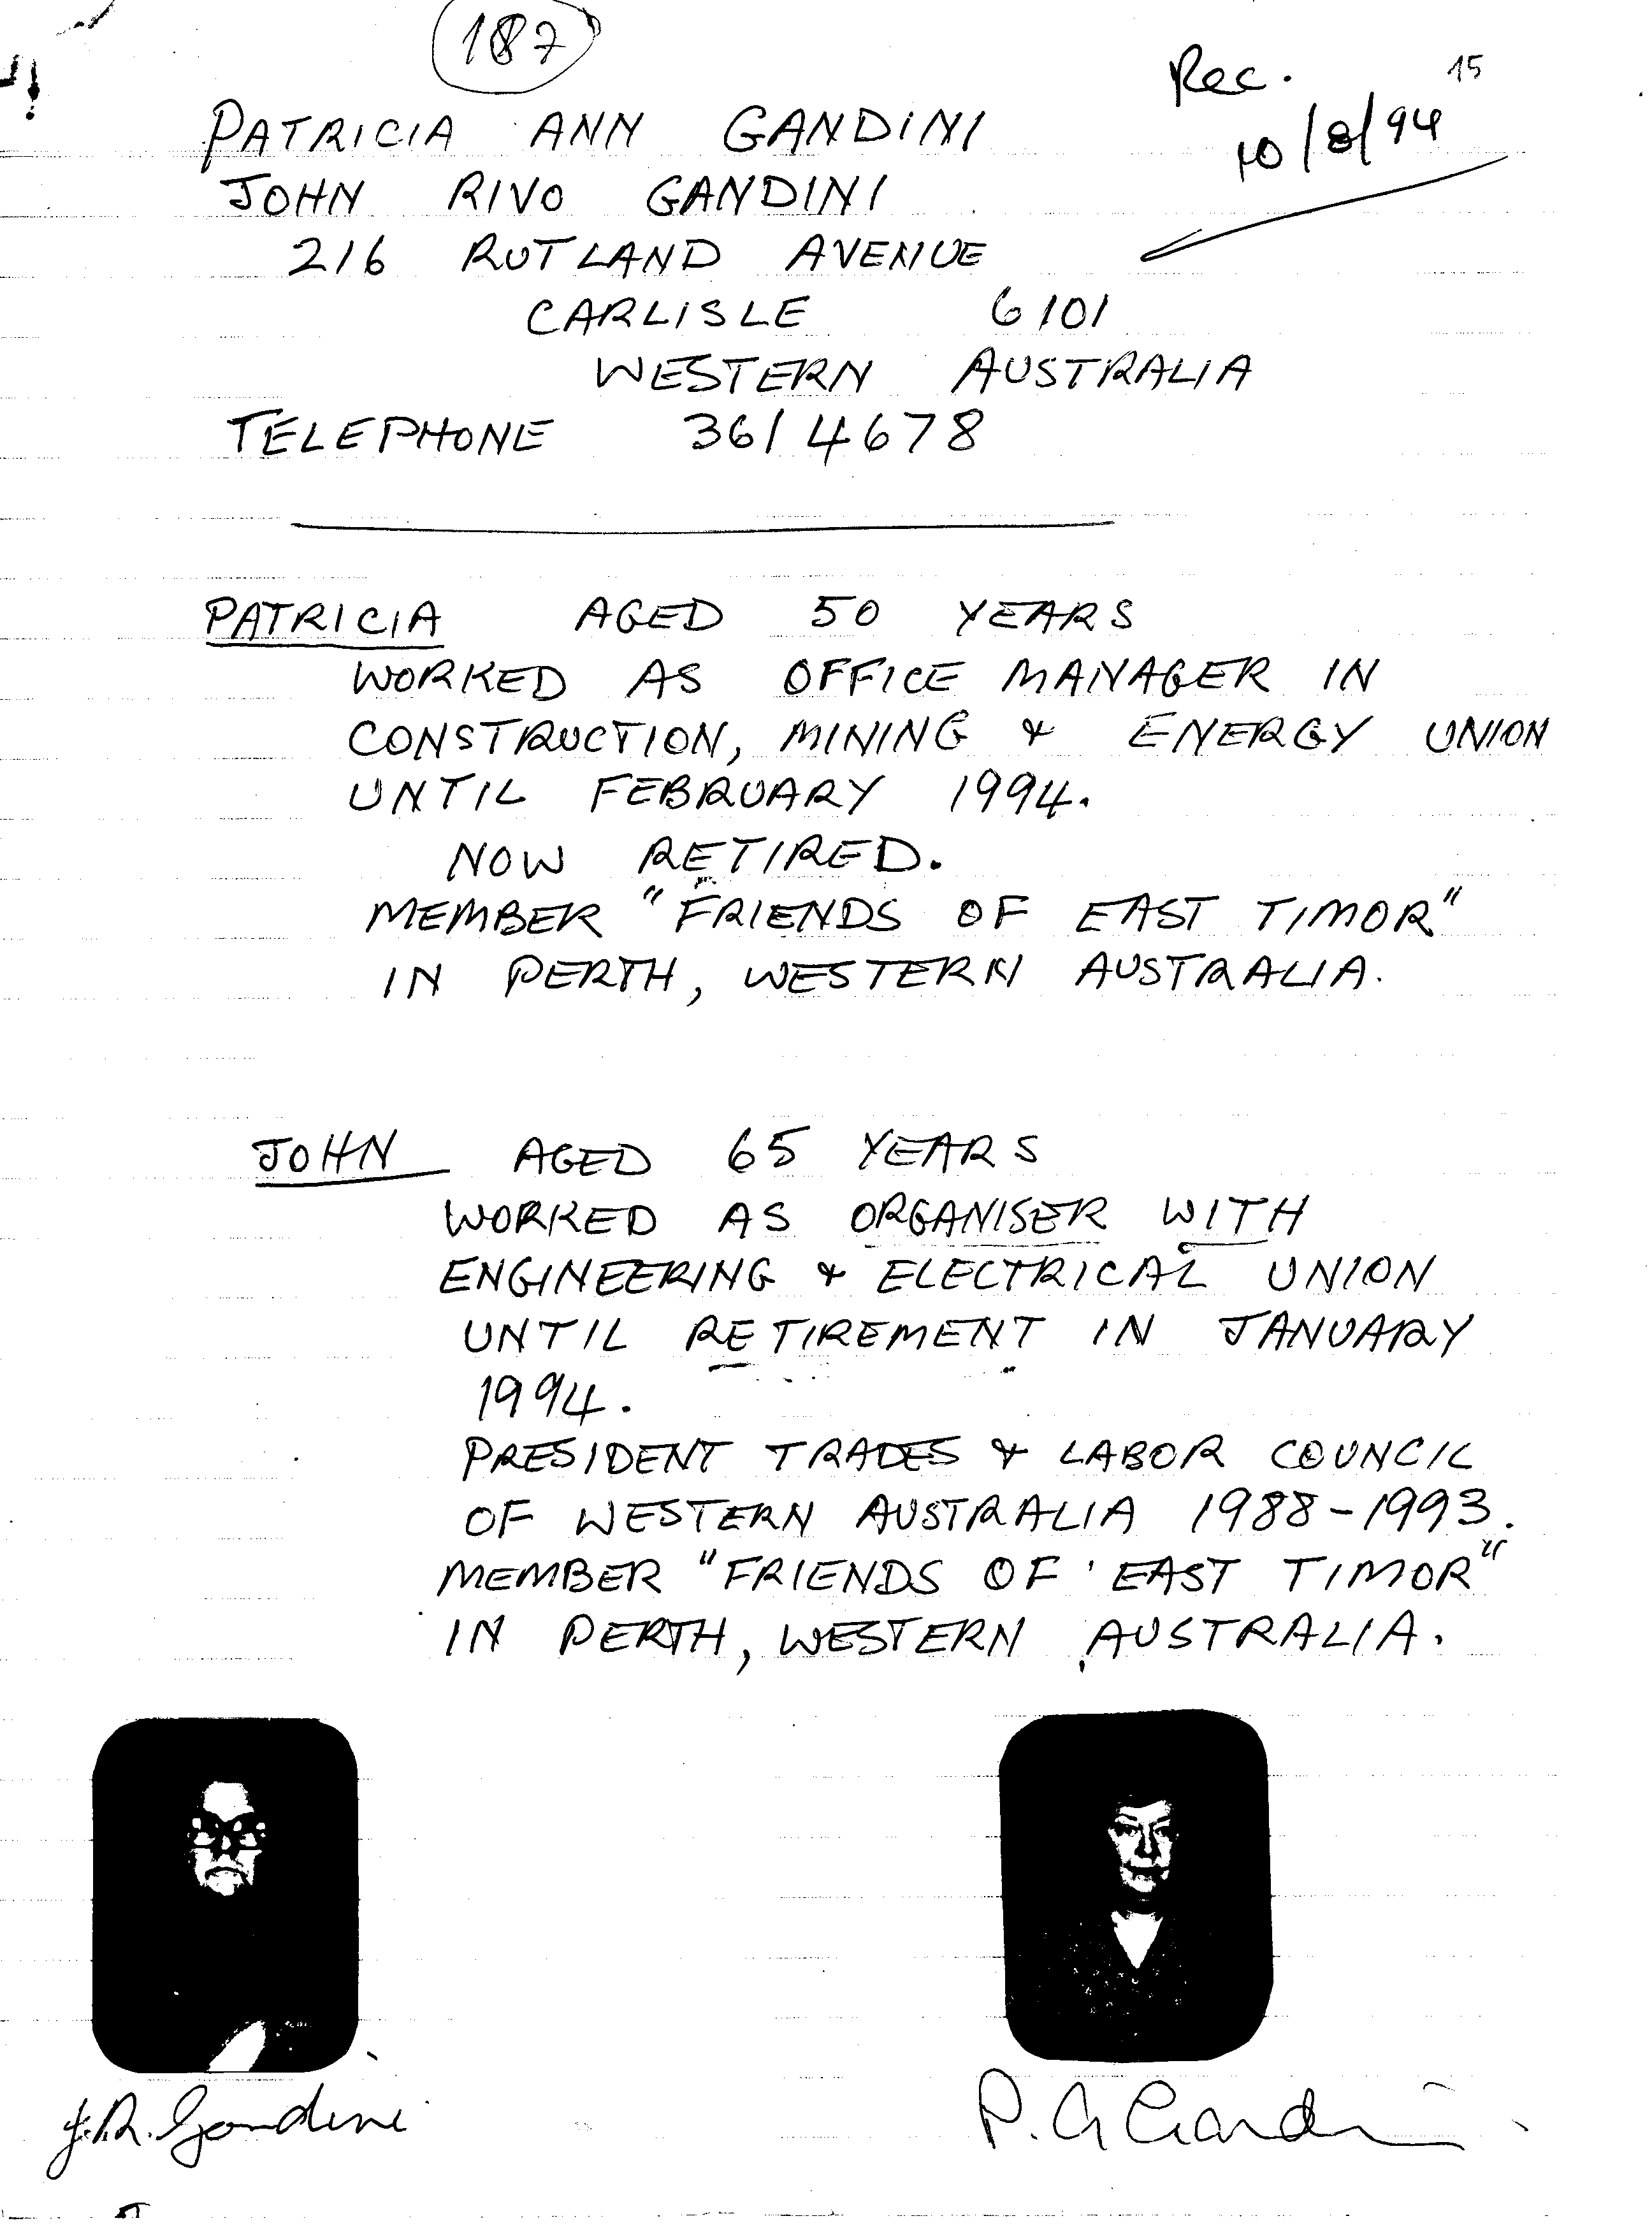 187
Rec. 15
10/8/94
PATRICIA ANN GANDINI
JOHN RIVO GANDINI
216 RUTLAND AVENUE
CARLISLE 6101
WESTERN AUSTRALIA
TELEPHONE 361 4678
PATRICIA AGED 50 YEARS
WORKED AS OFFICE MANAGER IN
CONSTRUCTION, MINING & ENERGY UNION
UNTIL FEBRUARY 1994.
NOW RETIRED.
MEMBER "FRIENDS OF EAST TIMOR"
IN PERTH, WESTERN AUSTRALIA.
JOHN AGED 65 YEARS
WORKED AS ORGANISER WITH
ENGINEERING & ELECTRICAL UNION
UNTIL RETIREMENT IN JANUARY
1994.
PRESIDENT TRADES & LABOR COUNCIL
OF WESTERN AUSTRALIA 1988-1993.
MEMBER "FRIENDS OF EAST TIMOR"
IN PERTH, WESTERN AUSTRALIA.
J.R. Gandini P. A Gandini